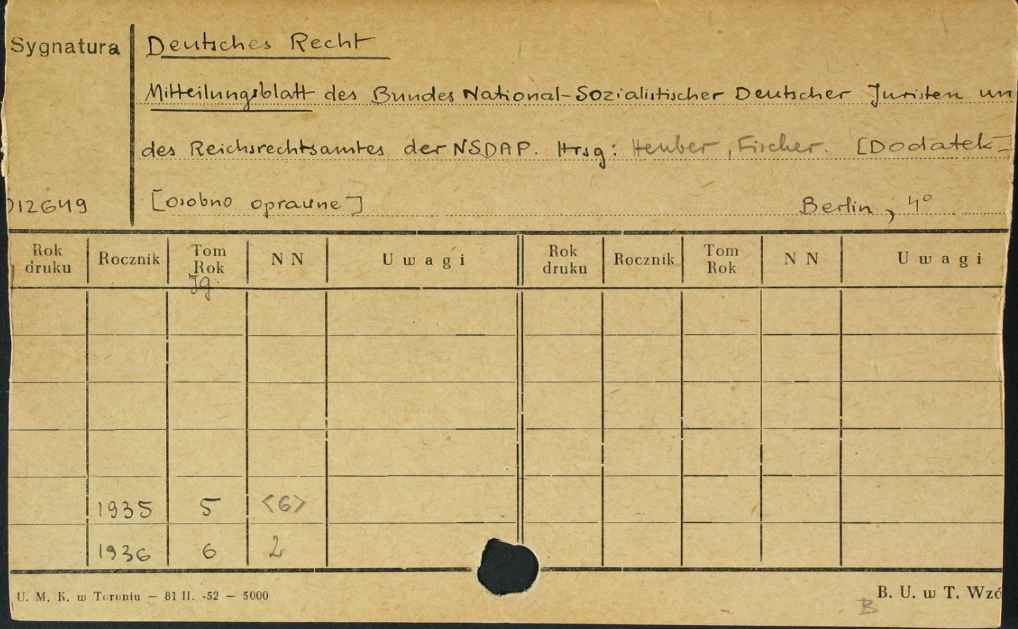 Sygnatura Deutsches Recht
Mitteilungsblatt des Bundes National-Sozialistischer Deutscher Juristen un
des Reichsrechtsamtes der NSDAP. Hrsg: Heuber, Fischer. [Dodatek-]
012649 [osobno oprawne] Berlin, 4°
Rok druku Rocznik Tom Rok NN Uwagi Rok druku Rocznik Tom Rok NN Uwagi
Jg.
1935 5 <6>
1936 6 2
U. M. K. w Toruniu — 81 II. -52 — 5000 B. U. w T. Wzó
B